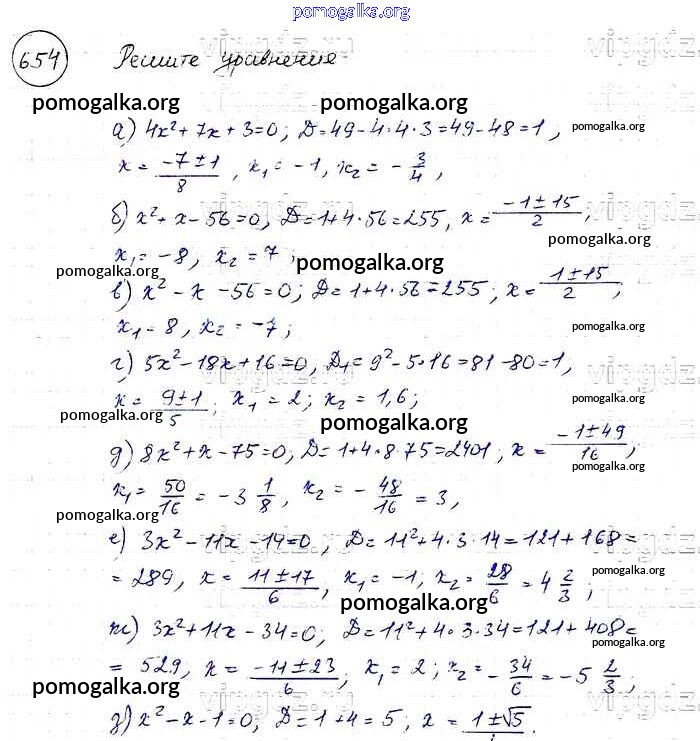 pomogalka.org
654 Решите уравнения
pomogalka.org pomogalka.org
а) 4x² + 7x + 3 = 0; D = 49 - 4·4·3 = 49 - 48 = 1, pomogalka.org
x = (-7 ± 1)/8, x₁ = -1, x₂ = -3/4,
pomogalka.org
б) x² + x - 56 = 0, D = 1 + 4·56 = 255, x = (-1 ± 15)/2,
x₁ = -8, x₂ = 7;
pomogalka.org pomogalka.org pomogalka.org
в) x² - x - 56 = 0; D = 1 + 4·56 = 255; x = (1 ± 15)/2,
x₁ = 8, x₂ = -7; pomogalka.org
г) 5x² - 18x + 16 = 0, D₁ = 9² - 5·16 = 81 - 80 = 1,
x = (9 ± 1)/5; x₁ = 2; x₂ = 1,6;
pomogalka.org pomogalka.org pomogalka.org
д) 8x² + x - 75 = 0; D = 1 + 4·8·75 = 2401, x = (-1 ± 49)/16,
x₁ = 50/16 = -3 1/8, x₂ = -48/16 = 3,
pomogalka.org pomogalka.org pomogalka.org
е) 3x² - 11x - 14 = 0, D = 11² + 4·3·14 = 121 + 168 =
= 289, x = (11 ± 17)/6, x₁ = -1, x₂ = 28/6 = 4 2/3;
pomogalka.org pomogalka.org
ж) 3x² + 11x - 34 = 0; D = 11² + 4·3·34 = 121 + 408 =
pomogalka.org
= 529, x = (-11 ± 23)/6; x₁ = 2; x₂ = -34/6 = -5 2/3;
pomogalka.org pomogalka.org pomogalka.org
з) x² - x - 1 = 0, D = 1 + 4 = 5, x = 1 ± √5